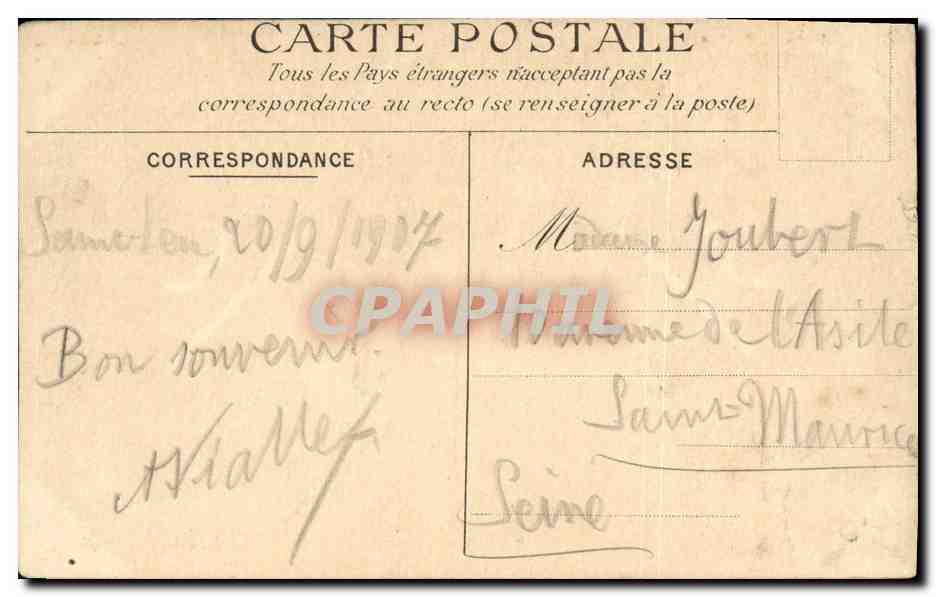 CARTE POSTALE
Tous les Pays étrangers n'acceptant pas la
correspondance au recto (se renseigner à la poste)
CORRESPONDANCE
ADRESSE
20/9/1907
Bon souvenir.
Madame Joubert
de l'Asile
Saint-Maurice
Seine
CPAPHIL